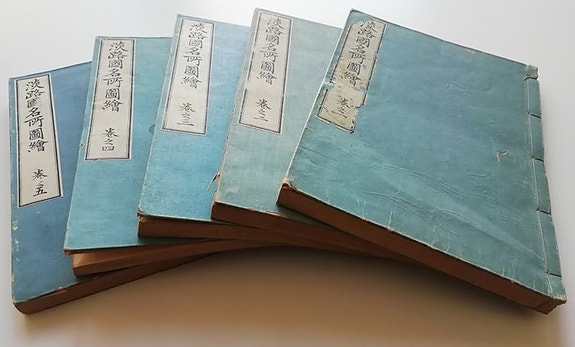 淡路國名所圖繪 卷之一
淡路國名所圖繪 卷之二
淡路國名所圖繪 卷之三
淡路國名所圖繪 卷之四
淡路國名所圖繪 卷之五